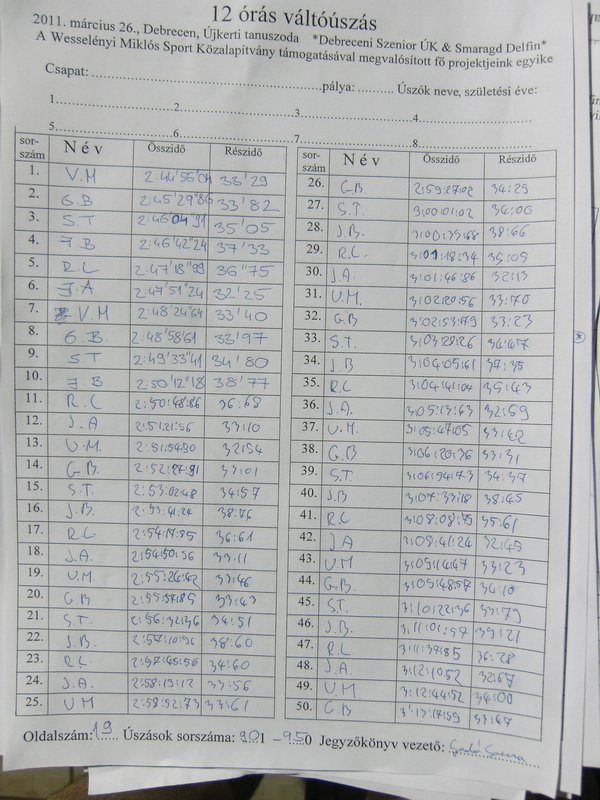 12 órás váltóúszás
2011. március 26., Debrecen, Újkerti tanuszoda *Debreceni Szenior ÚK & Smaragd Delfin*
A Wesselényi Miklós Sport Közalapítvány támogatásával megvalósított fő projektjeink egyike
Csapat: ........ pálya: .......... Úszók neve, születési éve:
1........2........3........4........
5........6........7........8........
sorszám Név Összidő Részidő
1. V.M 2:44'56'04 33'29
2. G.B 2:45'29"86 33'82
3. S.T 2:46'04"91 35'05
4. J.B 2:46'42"24 37'33
5. R.L 2:47'18"99 36"75
6. J.A 2:47'51"24 32'25
7. V.M 2:48'24"64 33'40
8. G.B. 2:48'58'61 33'97
9. S.T 2:49'33"41 34'80
10. J B 2:50'12"18 38'77
11. R.L 2:50:48:86 36:68
12. J.A 2:51:21:96 33:10
13. U.M. 2:51:54:50 32:54
14. G.B. 2:52:27:51 33:01
15. S.T. 2:53:02:48 34:57
16. J.B. 2:53:41:24 38:76
17. R.L. 36:61
18. J.A. 2:54:50:96 33:11
19. U.M. 2:55:24:42 33:46
20. G.B 2:55:57:85 33:43
21. S.T. 2:56:32:36 34:51
22. J.B. 2:57:10:96 38:60
23. R.L. 2:57:45:56 34:60
24. J.A. 2:58:19:12 33:56
25. U M 2:58:52:73 33:61
sorszám Név Összidő Részidő
26. G.B 2:59:27:02 34:29
27. S.T. 3:00:01:02 34:00
28. J.B. 38:66
29. R.L. 3:01:18:34
30. J.A. 3:01:46:86 32:13
31. U.M. 3:02:20:56 33:70
32. G.B 3:02:53:79 33:23
33. S.T. 3:03:28:26 34:47
34. J.B 3:04:05:61 37:35
35. R.L 35:43
36. J.A. 3:05:13:63 32:59
37. U.M. 3:05:47:05 33:42
38. G.B 3:06:20:36 33:31
39. S.T. 3:06:54:73 34:37
40. J.B 3:07:33:18 38:45
41. R.L 3:08:08:79 35:61
42. J.A 3:08:41:24 32:45
43. U.M 3:09:14:47 33:23
44. G.B. 3:09:48:57 34:10
45. S.T. 3:10:22:36 33:79
46. J.B. 3:11:01:57 39:21
47. R.L. 3:11:37:85 36:28
48. J.A. 3:12:10:52 32:67
49. U.M. 3:12:44:52 34:00
50. G.B 33:47
Oldalszám: 19 Úszások sorszáma: 901 – 950 Jegyzőkönyv vezető: